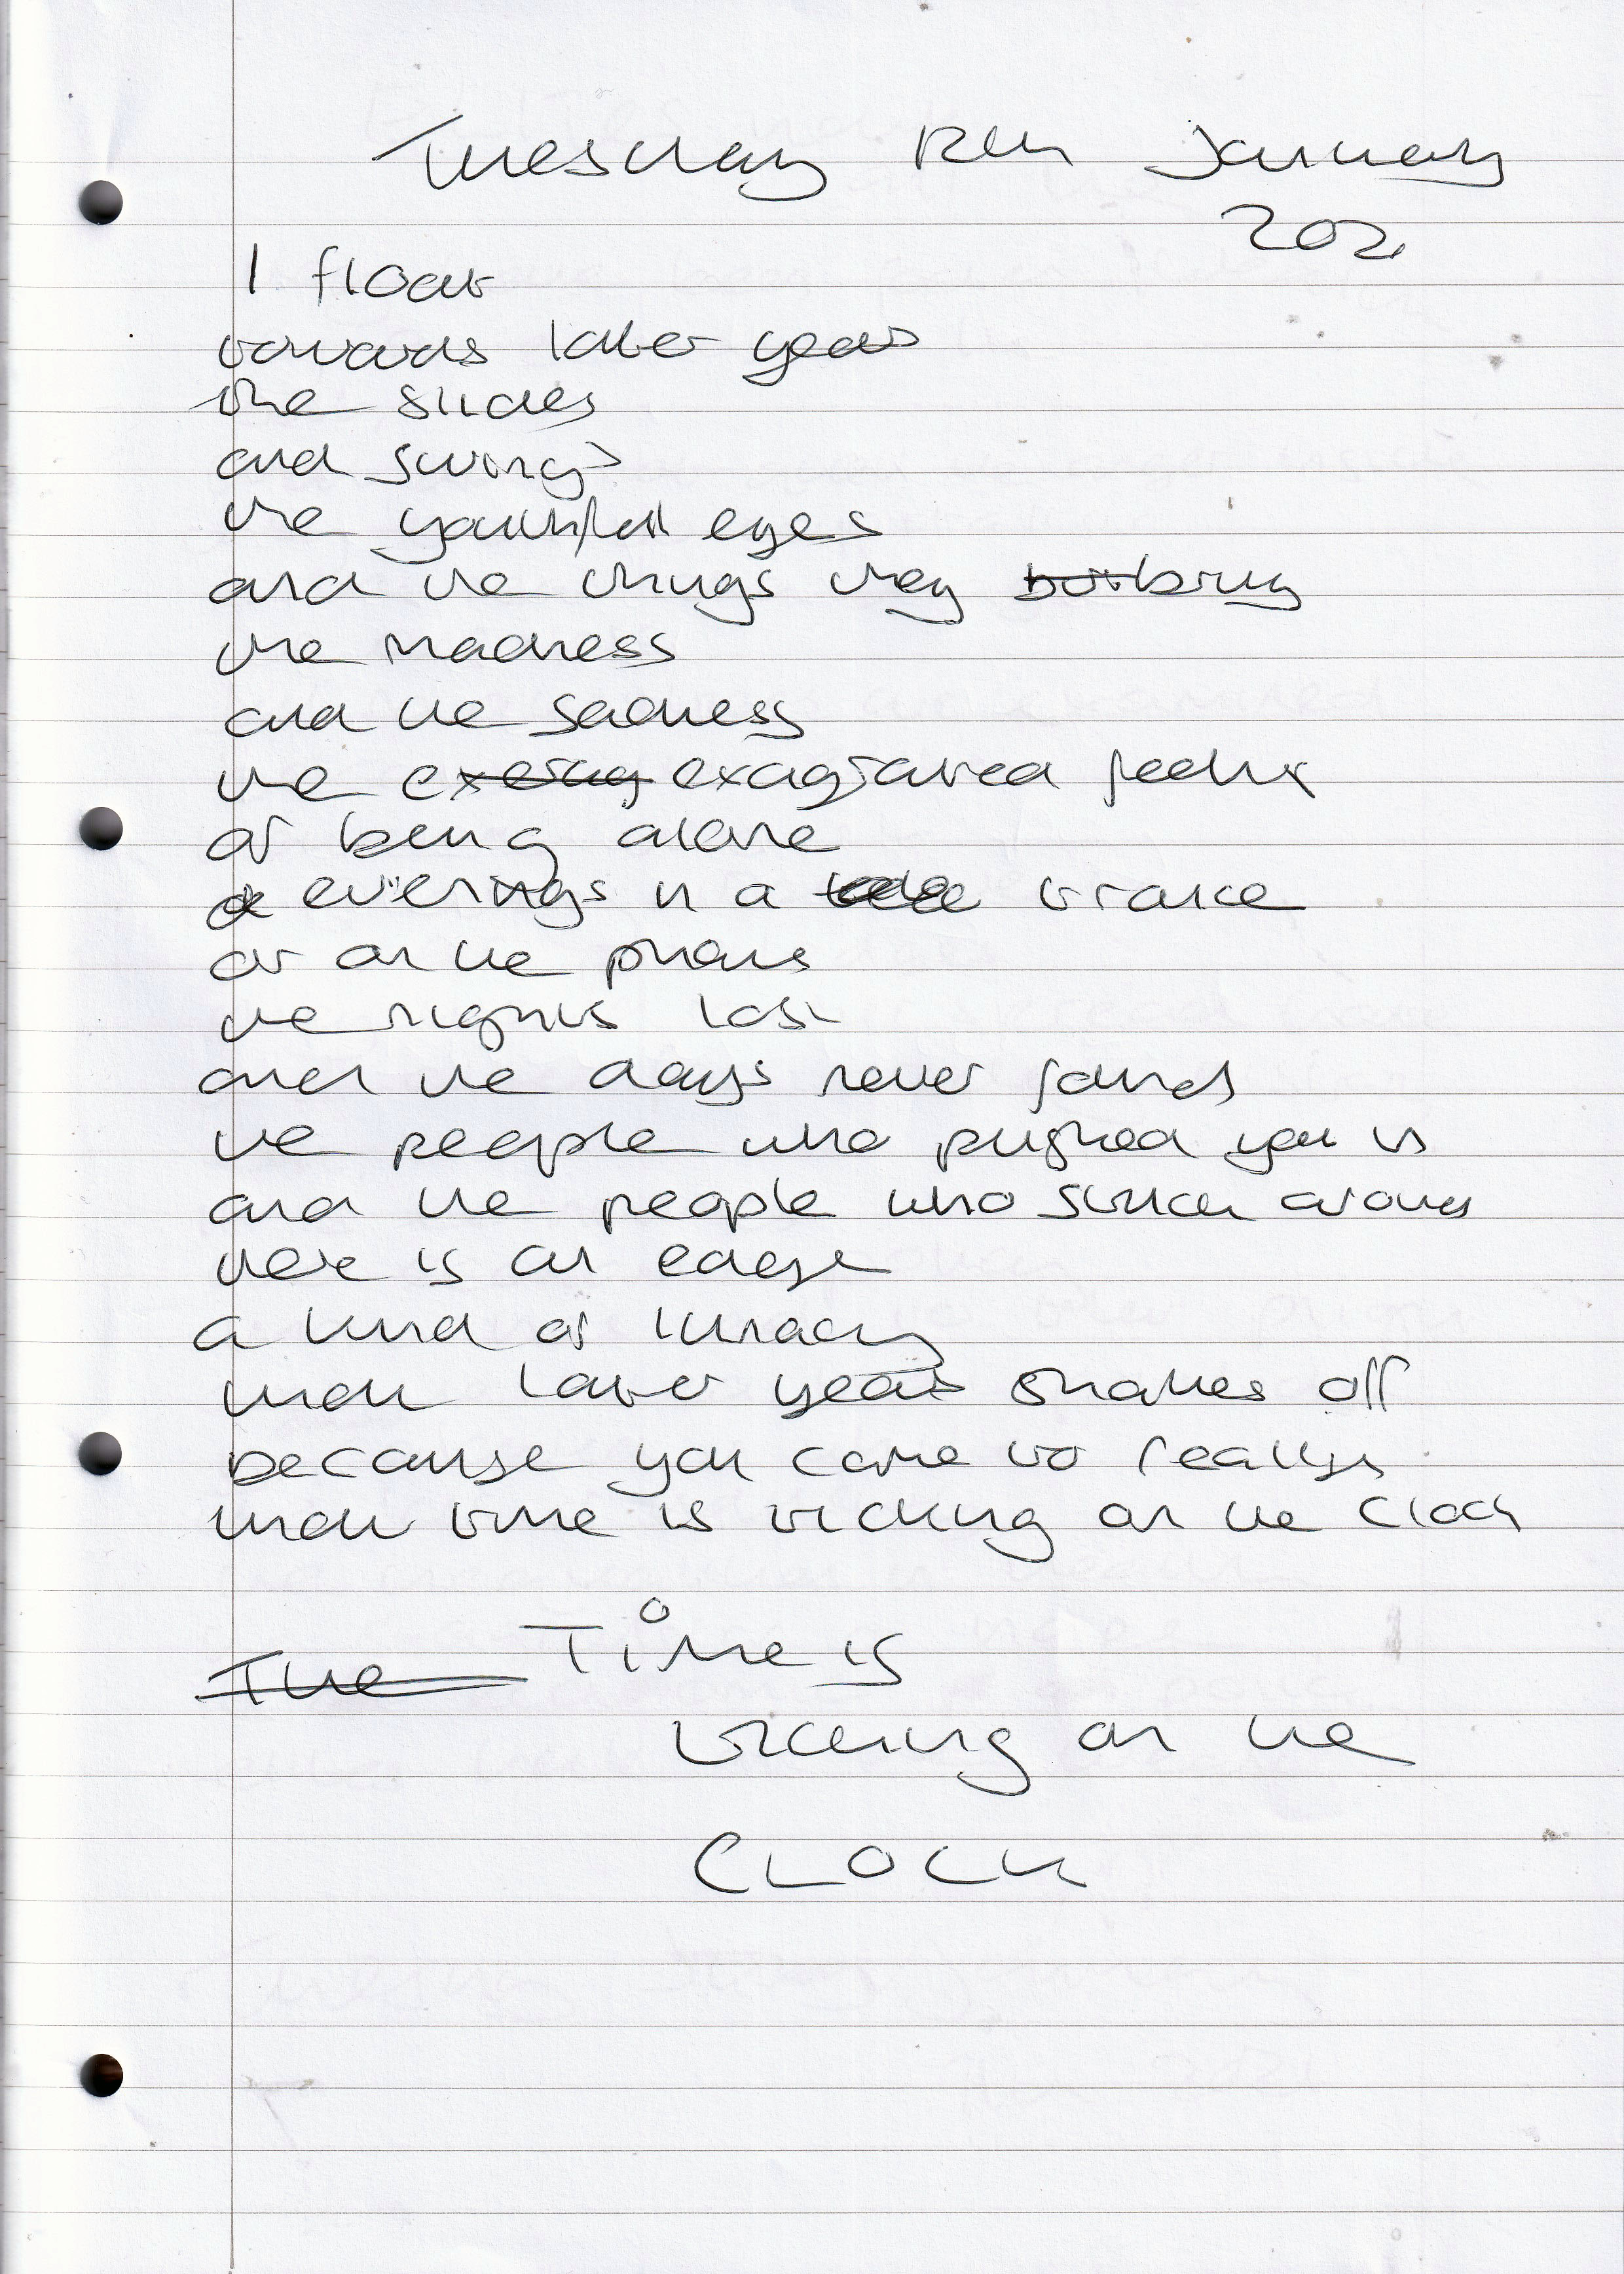 Tuesday 12th January
2021
I float
towards later years
the slides
and swings
the youthfull eyes
and the things they bring
the madness
and the sadness
the exagirated feeling
of being alone
evenings in a
or on the phone
the nights lost
and the days never found
the people who pushed you in
and the people who stuck around
there is an edge
a kind of lunacy
when later years shakes off
because you come to realise
when time is ticking on the clock
The Time is
ticking on the
CLOCK